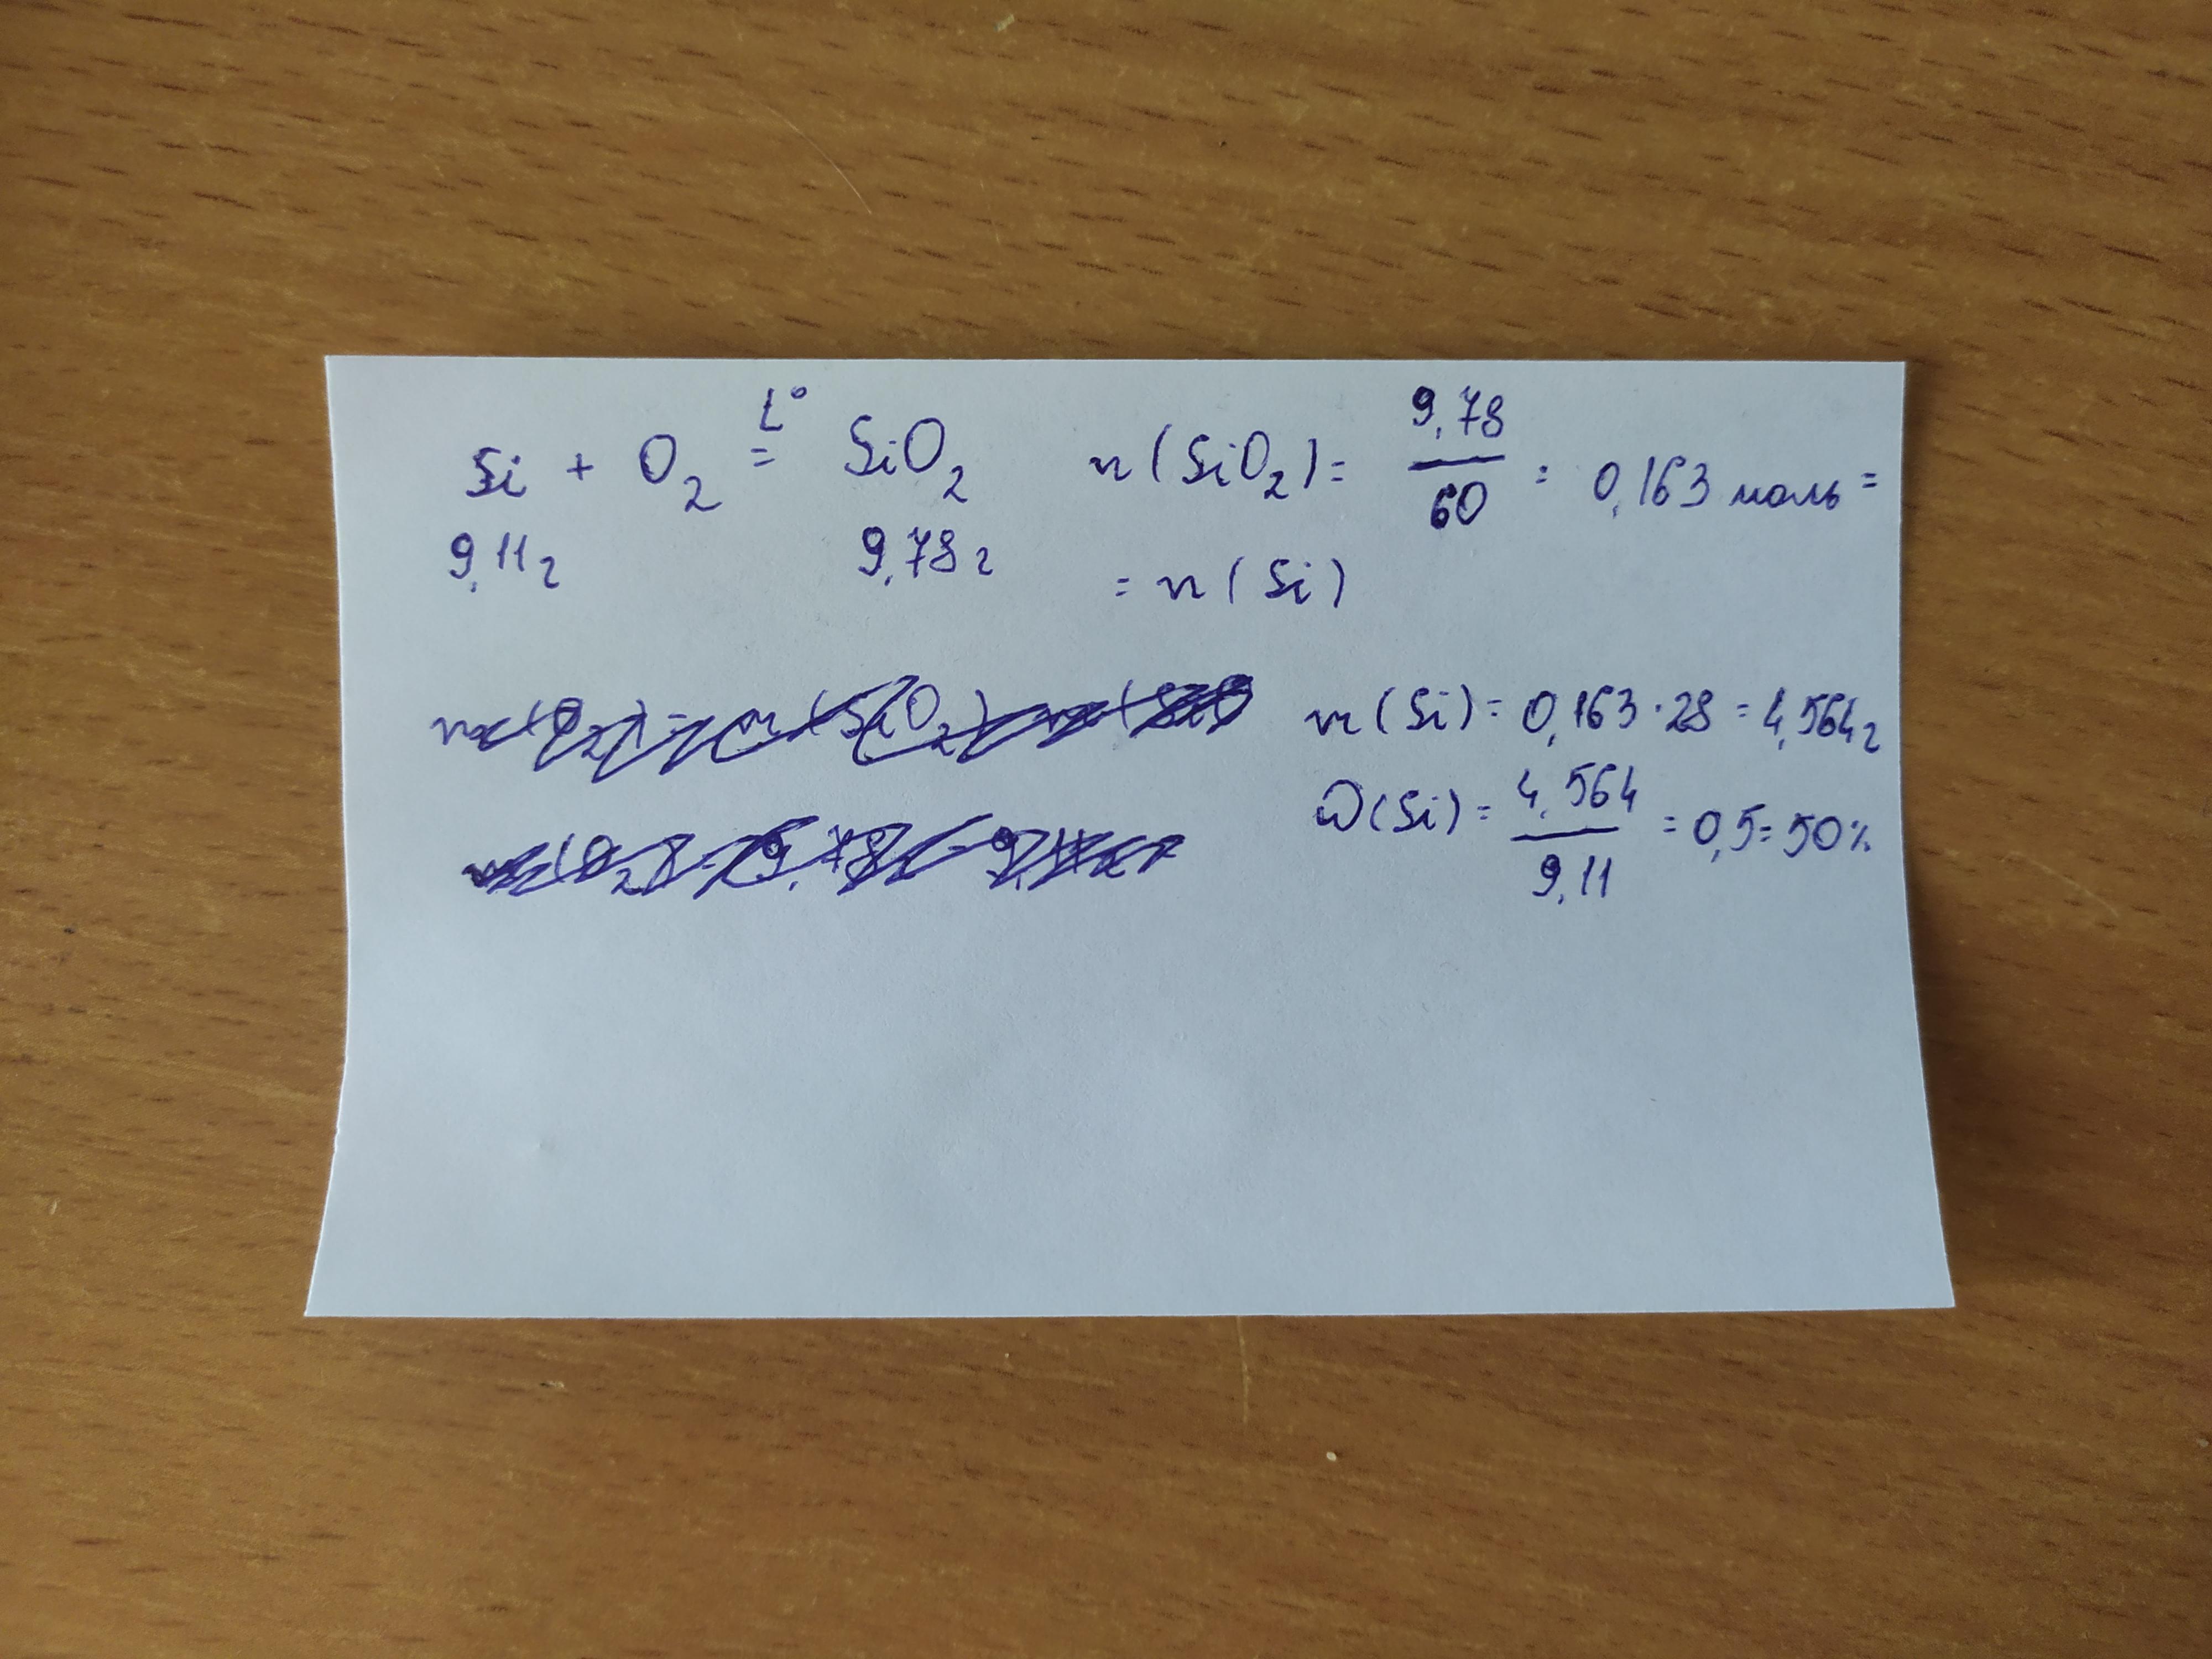 t°
Si + O2 = SiO2
9,11г 9,78г
n(SiO2) = 9,78/60 = 0,163 моль =
= n(Si)
m(O2) = m(SiO2) - m(
m(Si) = 0,163 · 28 = 4,564г
ω(Si) = 4,564/9,11 = 0,5 = 50%